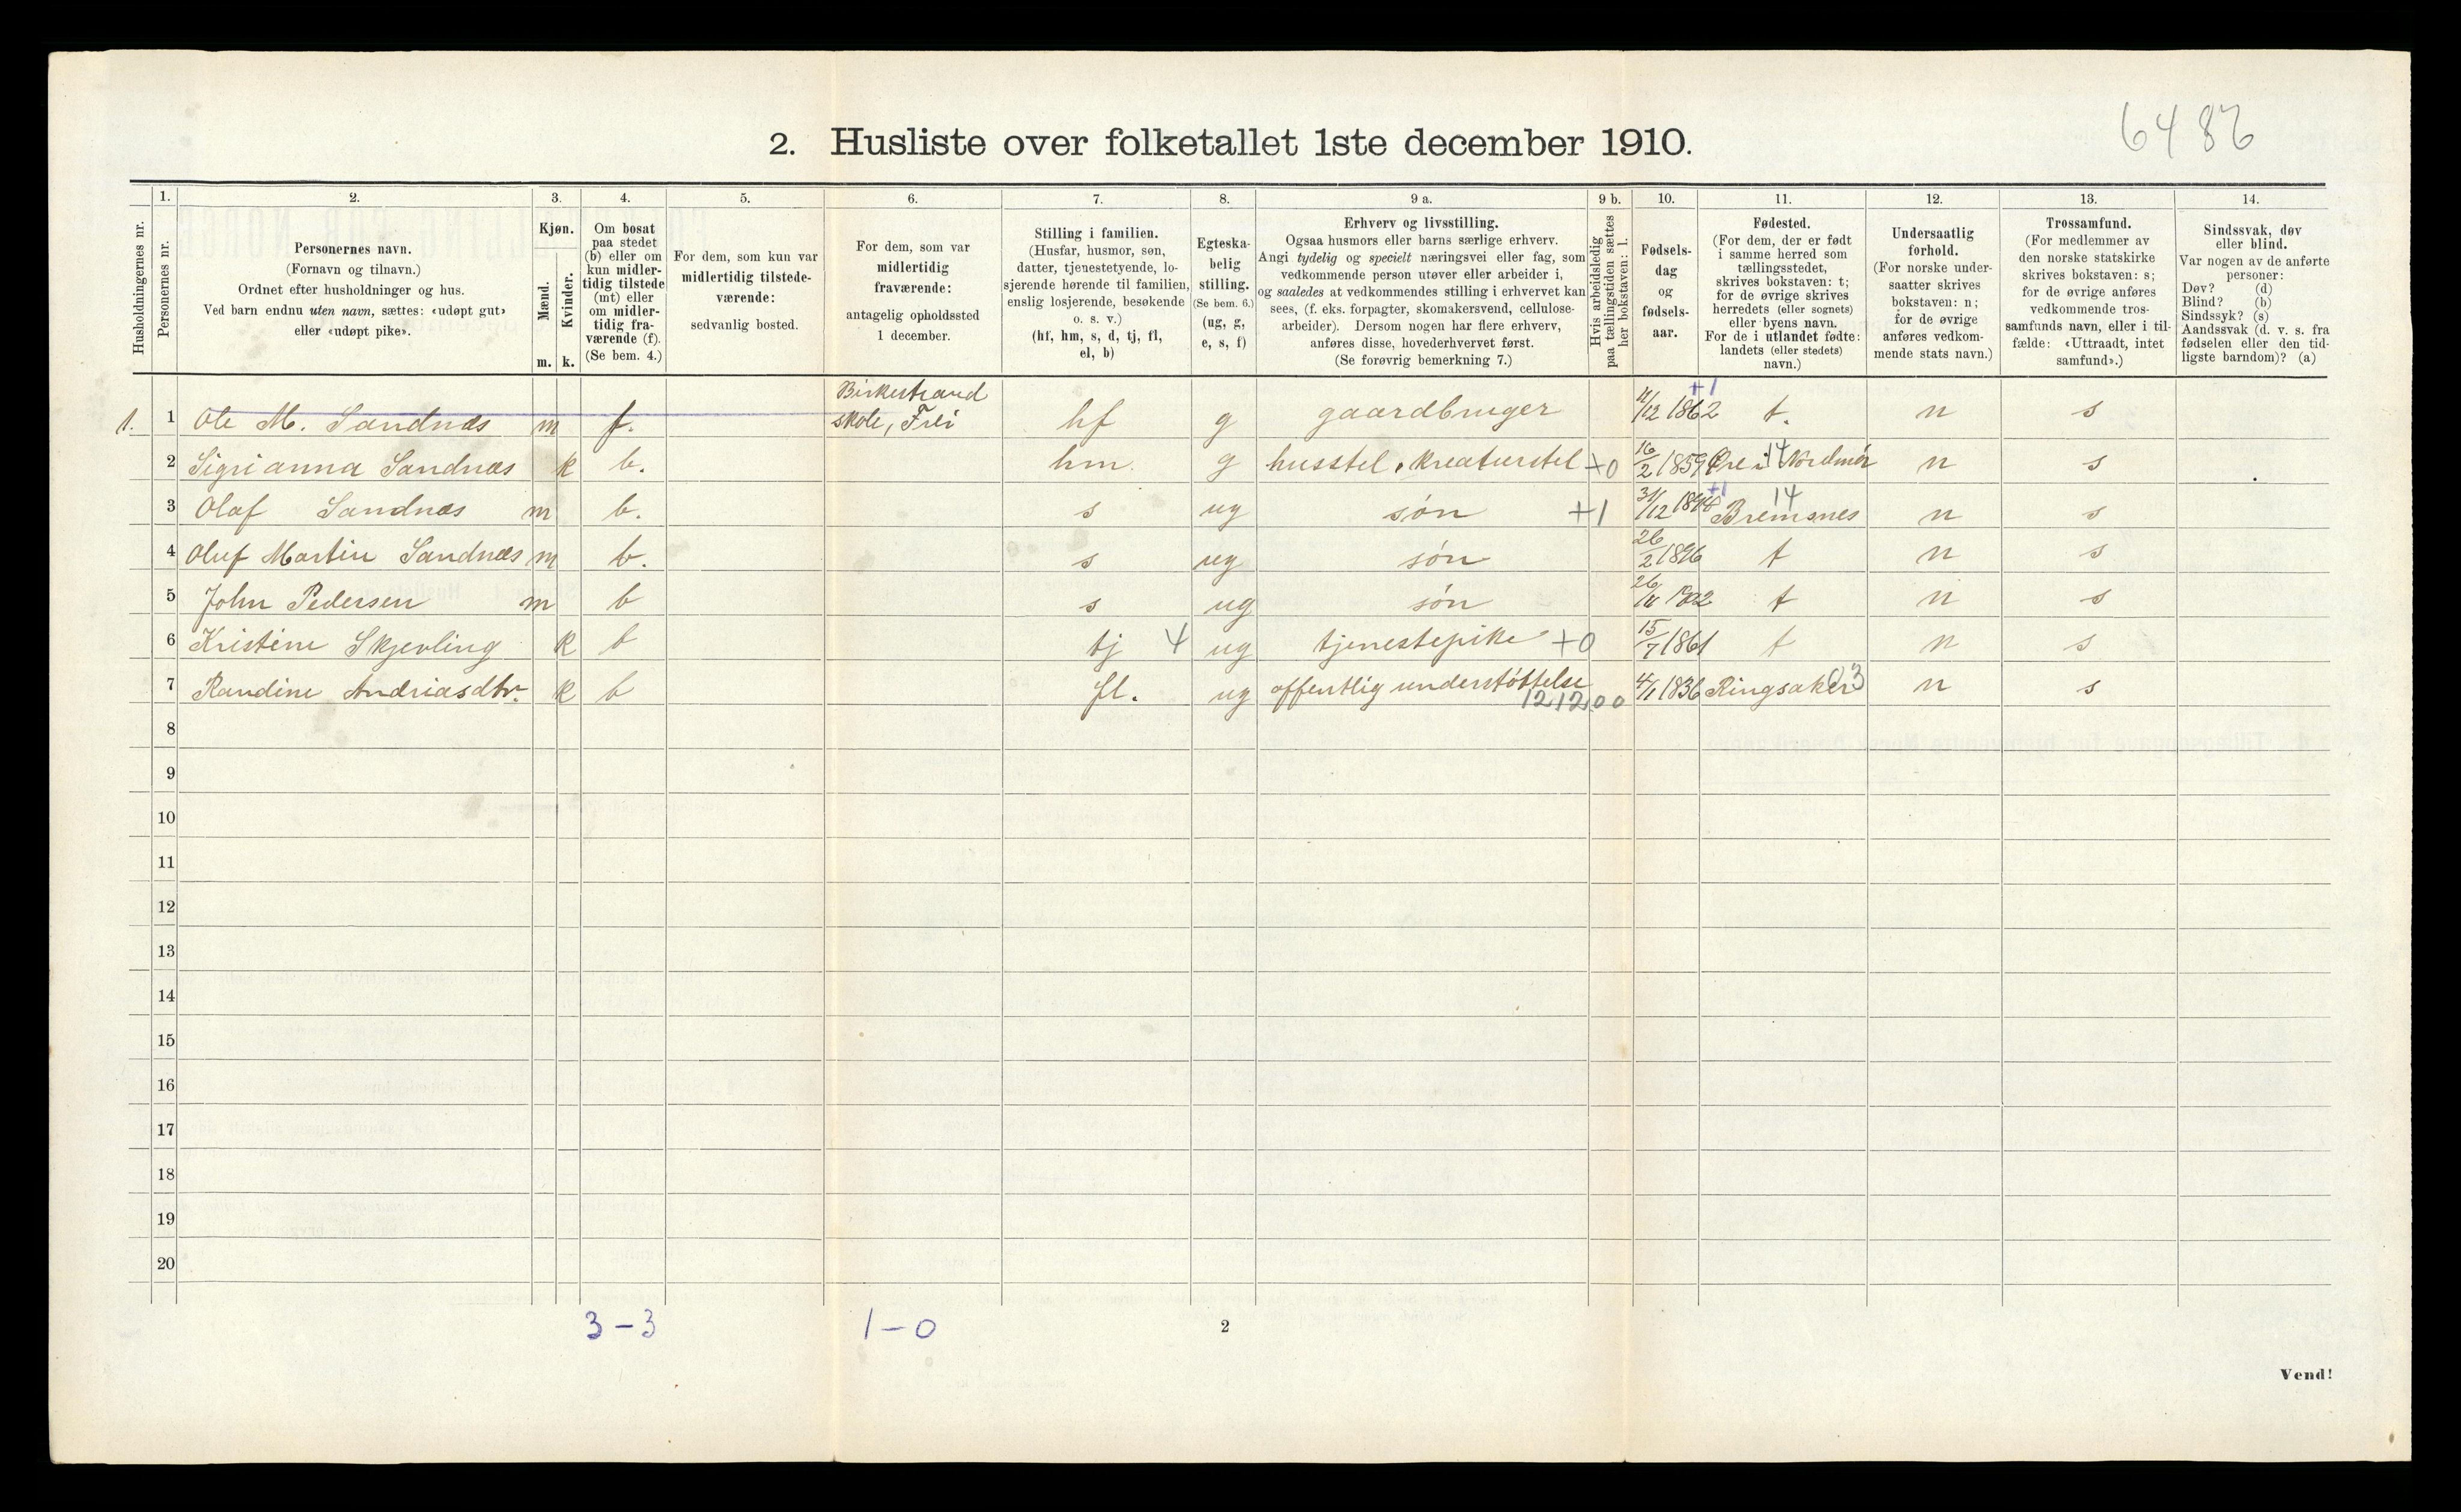 6486
2. Husliste over folketallet 1ste december 1910.
Husholdningernes nr.
1. Personernes nr.
2. Personernes navn. (Fornavn og tilnavn.) Ordnet efter husholdninger og hus. Ved barn endnu uten navn, sættes: «udøpt gut» eller «udøpt pike».
3. Kjøn. Mænd. m. Kvinder. k.
4. Om bosat paa stedet (b) eller om kun midlertidig tilstede (mt) eller om midlertidig fraværende (f). (Se bem. 4.)
5. For dem, som kun var midlertidig tilstedeværende: sedvanlig bosted.
6. For dem, som var midlertidig fraværende: antagelig opholdssted 1 december.
7. Stilling i familien. (Husfar, husmor, søn, datter, tjenestetyende, losjerende hørende til familien, enslig losjerende, besøkende o. s. v.) (hf, hm, s, d, tj, fl, el, b)
8. Egteskabelig stilling. (Se bem. 6.) (ug, g, e, s, f)
9 a. Erhverv og livsstilling. Ogsaa husmors eller barns særlige erhverv. Angi tydelig og specielt næringsvei eller fag, som vedkommende person utøver eller arbeider i, og saaledes at vedkommendes stilling i erhvervet kan sees, (f. eks. forpagter, skomakersvend, cellulosearbeider). Dersom nogen har flere erhverv, anføres disse, hovederhvervet først. (Se forøvrig bemerkning 7.)
9 b. Hvis arbeidsledig paa tællingstiden sættes her bokstaven: l.
10. Fødselsdag og fødselsaar.
11. Fødested. (For dem, der er født i samme herred som tællingsstedet, skrives bokstaven: t; for de øvrige skrives herredets (eller sognets) eller byens navn. For de i utlandet fødte: landets (eller stedets) navn.)
12. Undersaatlig forhold. (For norske undersaatter skrives bokstaven: n; for de øvrige anføres vedkommende stats navn.)
13. Trossamfund. (For medlemmer av den norske statskirke skrives bokstaven: s; for de øvrige anføres vedkommende trossamfunds navn, eller i tilfælde: «Uttraadt, intet samfund».)
14. Sindssvak, døv eller blind. Var nogen av de anførte personer: Døv? (d) Blind? (b) Sindssyk? (s) Aandssvak (d. v. s. fra fødselen eller den tidligste barndom)? (a)
1. 1 Ole M. Sandnæs m f. Birkestrand skole, Frei hf g gaardbruger 11/12 1862 +1 t. n s
2 Sigrianna Sandnæs k b. hm. g husstel, kreaturstel +0 16/2 1859 Øre i Nordmør 14 n s
3 Olaf Sandnæs m b. s ug søn +1 31/12 +1 Bremsnes 14 n s
4 Oluf Martin Sandnæs m b. s ug søn 26/2 1896 t n s
5 John Pedersen m b s ug søn 1902 t n s
6 Kristine Skjevling k b tj 4 ug tjenestepike +0 15/7 1861 t n s
7 Randine Andriasdtr. k b fl. ug offentlig understøttelse 121200 4/1 1836 Ringsaker 03 n s
8
9
10
11
12
13
14
15
16
17
18
19
20
3-3 1-0 2
Vend!